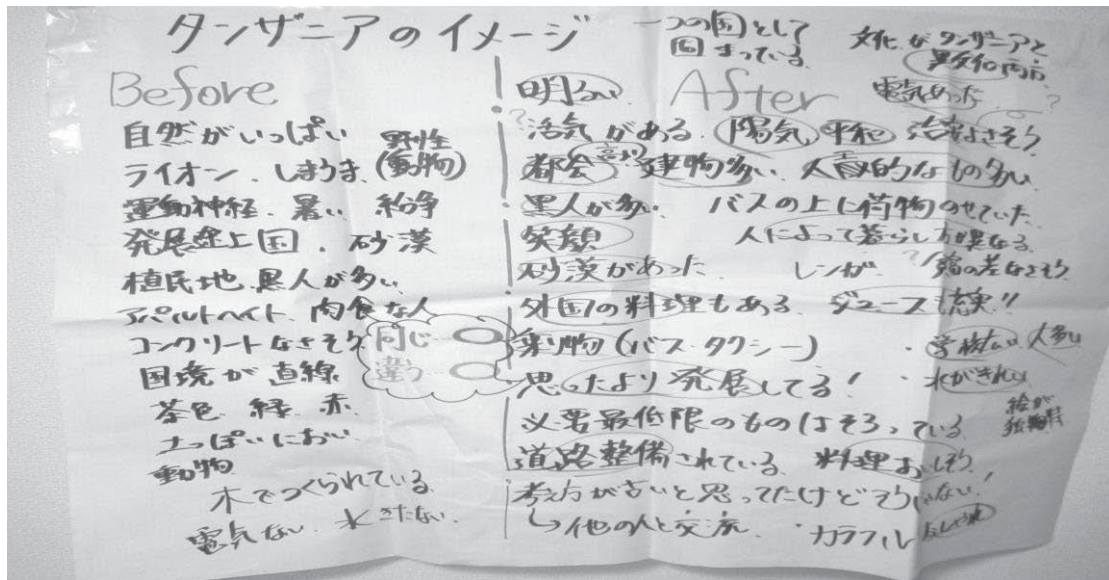 タンザニアのイメージ
一つの国として
固まっている
文化がタンザニアと
Before
明るい
After
電気あった
自然がいっぱい
野性
(動物)
ライオン. しまうま.
運動神経. 暑い 紛争
発展途上国. 砂漠
植民地. 黒人が多い.
アパルトヘイト. 肉食な人
コンクリートなさそう
国境が直線
茶色 緑 赤
土っぽいにおい
動物
木でつくられている
電気ない. 水きたない.
同じ
違う
活気がある. 陽気 平和 治安よさそう
都会 建物多い.
黒人が多い. バスの上に荷物のせていた.
笑顔 人によって暮らし方異なる.
砂漠があった レンガ
外国の料理もある. ジュース 充実!!
乗り物(バス・タクシー)
・人多い
思ったより発展してる! ・水がきれい
必要最低限のものはそろっている
絵が
独特
道路整備されている. 料理おいしそう
考え方が古いと思ってたけどそうじゃない!
↳他の人と交流 ・カラフル